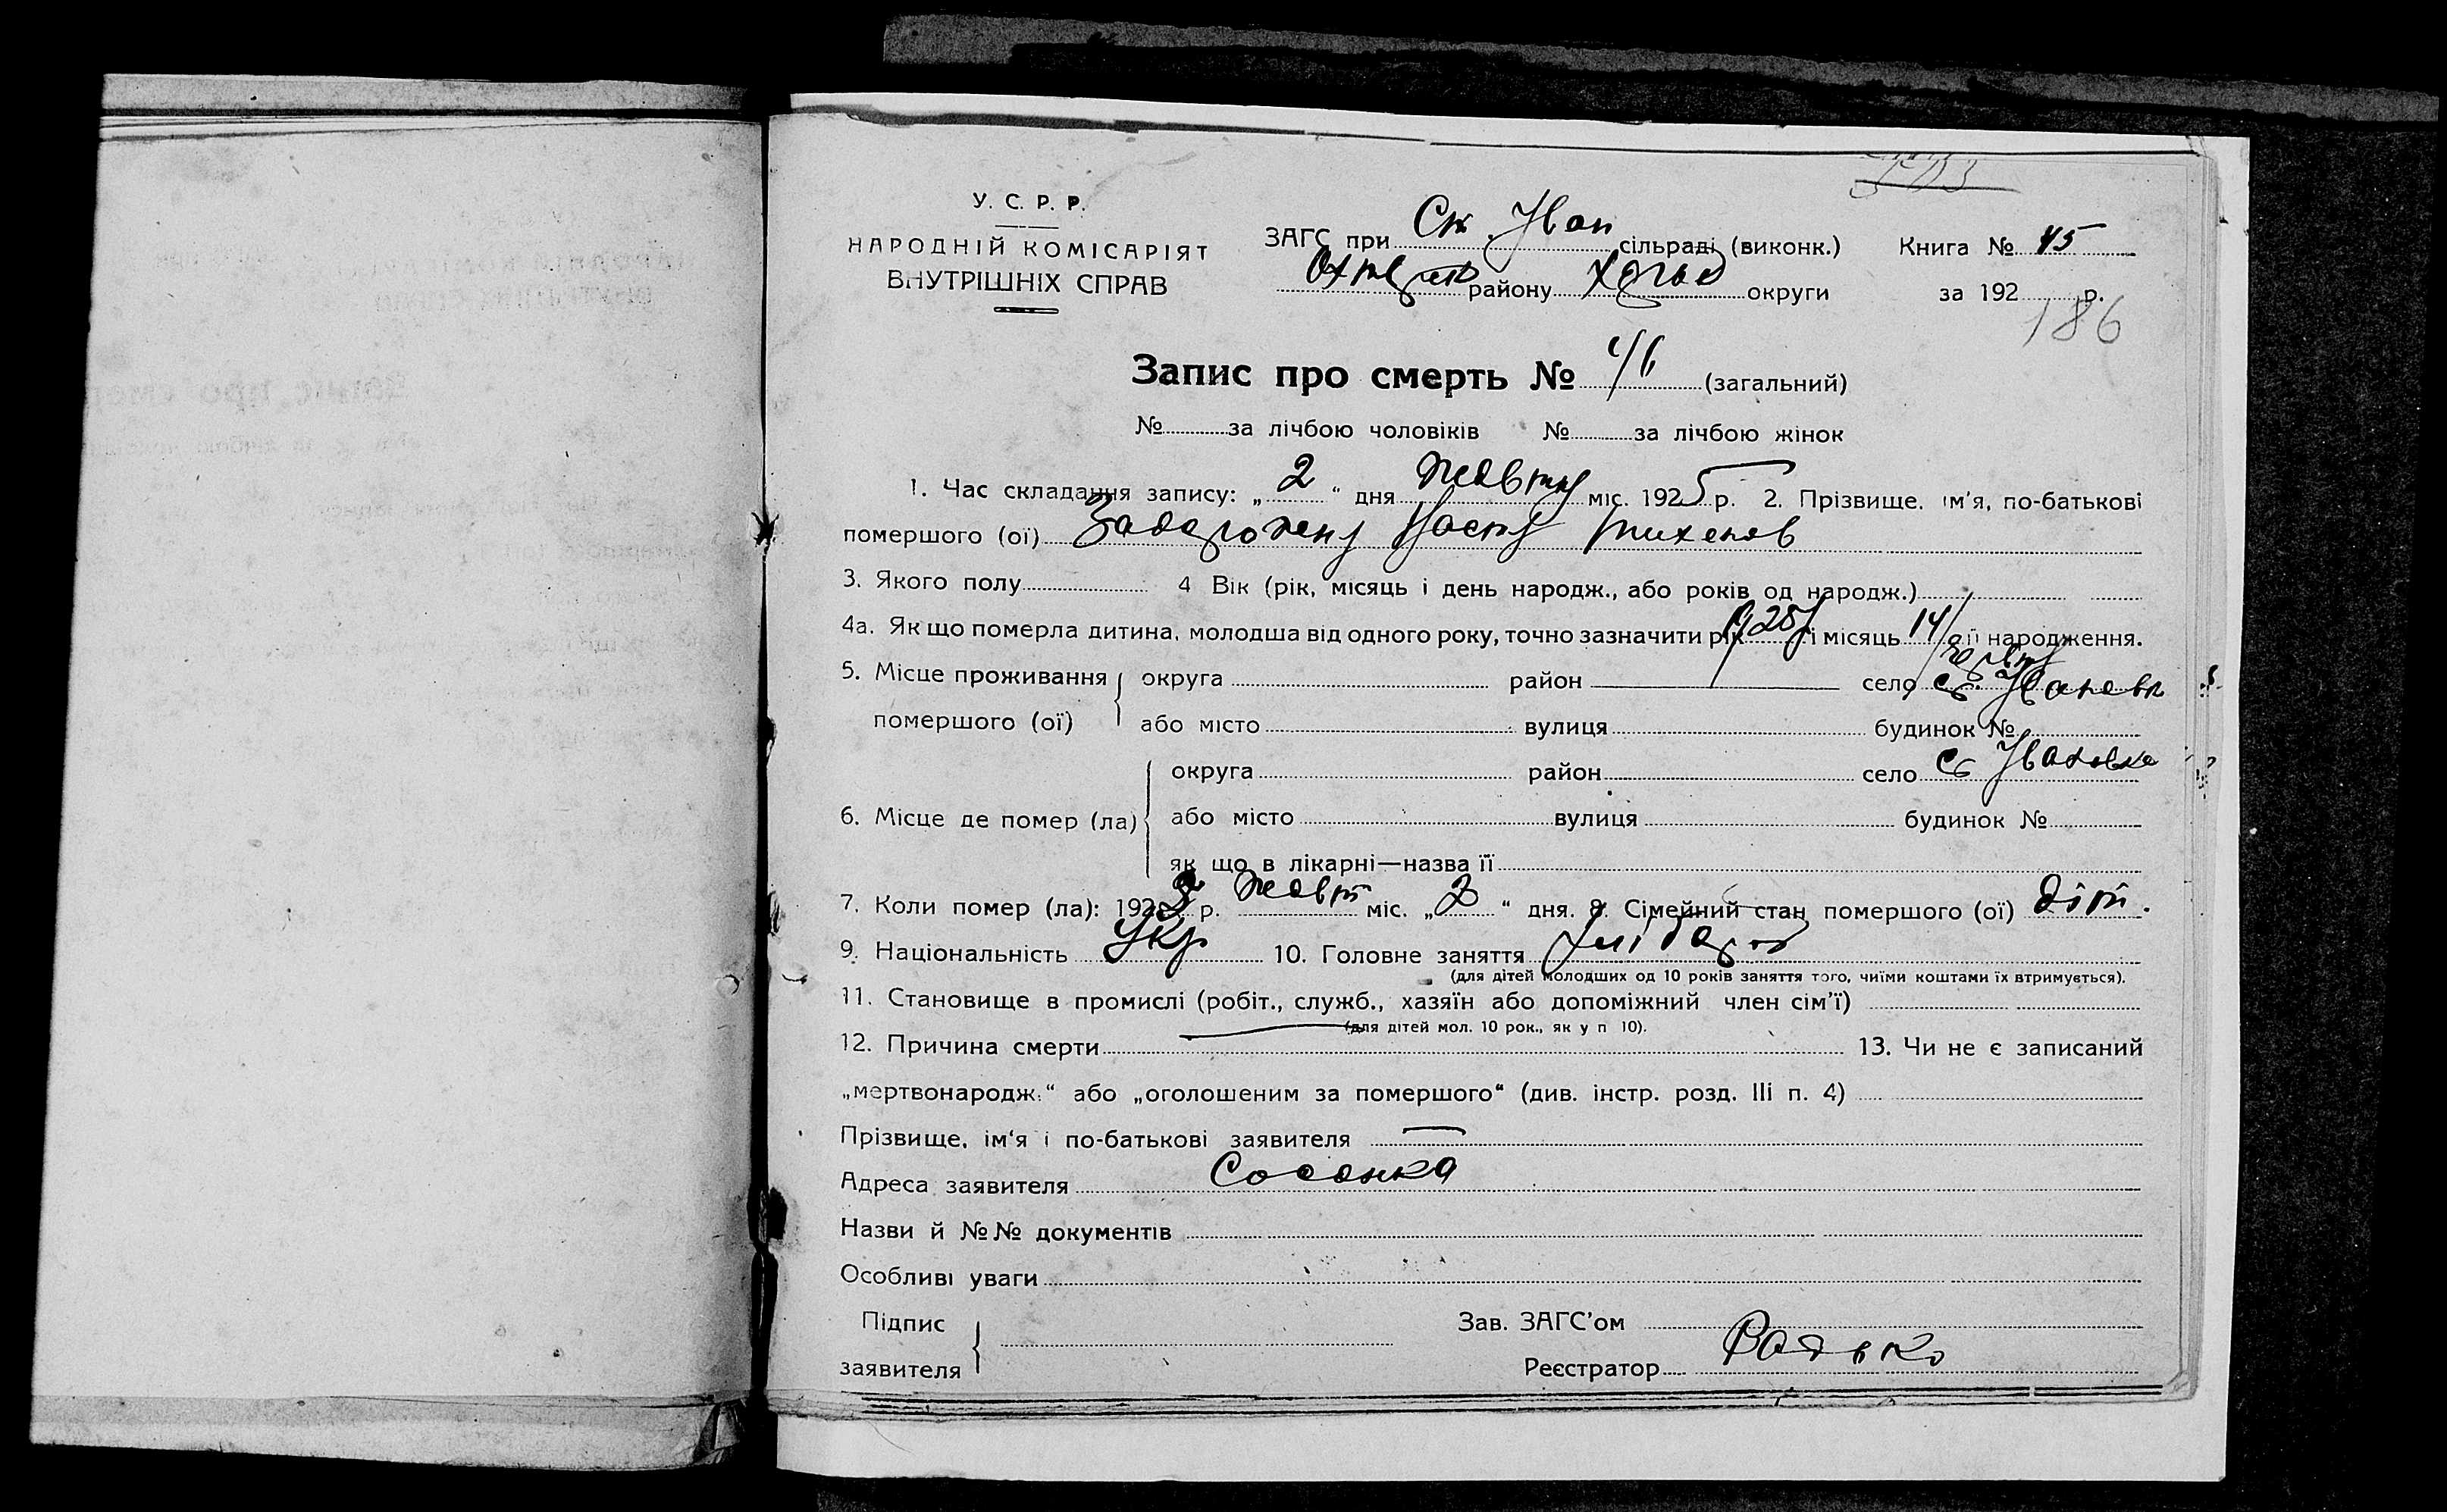 У. С. Р. Р.
НАРОДНІЙ КОМІСАРІЯТ
ВНУТРІШНІХ СПРАВ
ЗАГС при Ск. Иван сільраді (виконк.) Книга № 45
району округи за 192 р.
186
Запис про смерть № (загальний)
№ за лічбою чоловіків № за лічбою жінок
1. Час складання запису: „ 2 “ дня Жовтня міс. 1925 р. 2. Прізвище. ім'я, по-батькові
помершого (ої) Задорожну Настя Тихонов
3. Якого полу 4 Вік (рік, місяць і день народж., або років од народж.)
4а. Як що померла дитина, молодша від одного року, точно зазначити рік 1925 і місяць 14/ її народження.
5. Місце проживання округа район село Ск. Ивановк
помершого (ої) або місто вулиця будинок №
округа район село Ск Ивановка
6. Місце де помер (ла) або місто вулиця будинок №
як що в лікарні—назва її
7. Коли помер (ла): 192 р. Жовт міс. „ 2 “ дня. 8. Сімейний стан помершого (ої) діт.
9. Національність Укр 10. Головне заняття хлібороб
(для дітей молодших од 10 років заняття того, чиїми коштами їх втримується).
11. Становище в промислі (робіт., служб., хазяїн або допоміжний член сім'ї)
(для дітей мол. 10 рок., як у п 10).
12. Причина смерти 13. Чи не є записаний
„мертвонародж.“ або „оголошеним за помершого“ (див. інстр. розд. III п. 4)
Прізвище, ім'я і по-батькові заявителя
Адреса заявителя Сосонка
Назви й №№ документів
Особливі уваги
Підпис
заявителя
Зав. ЗАГС'ом
Реєстратор Радько